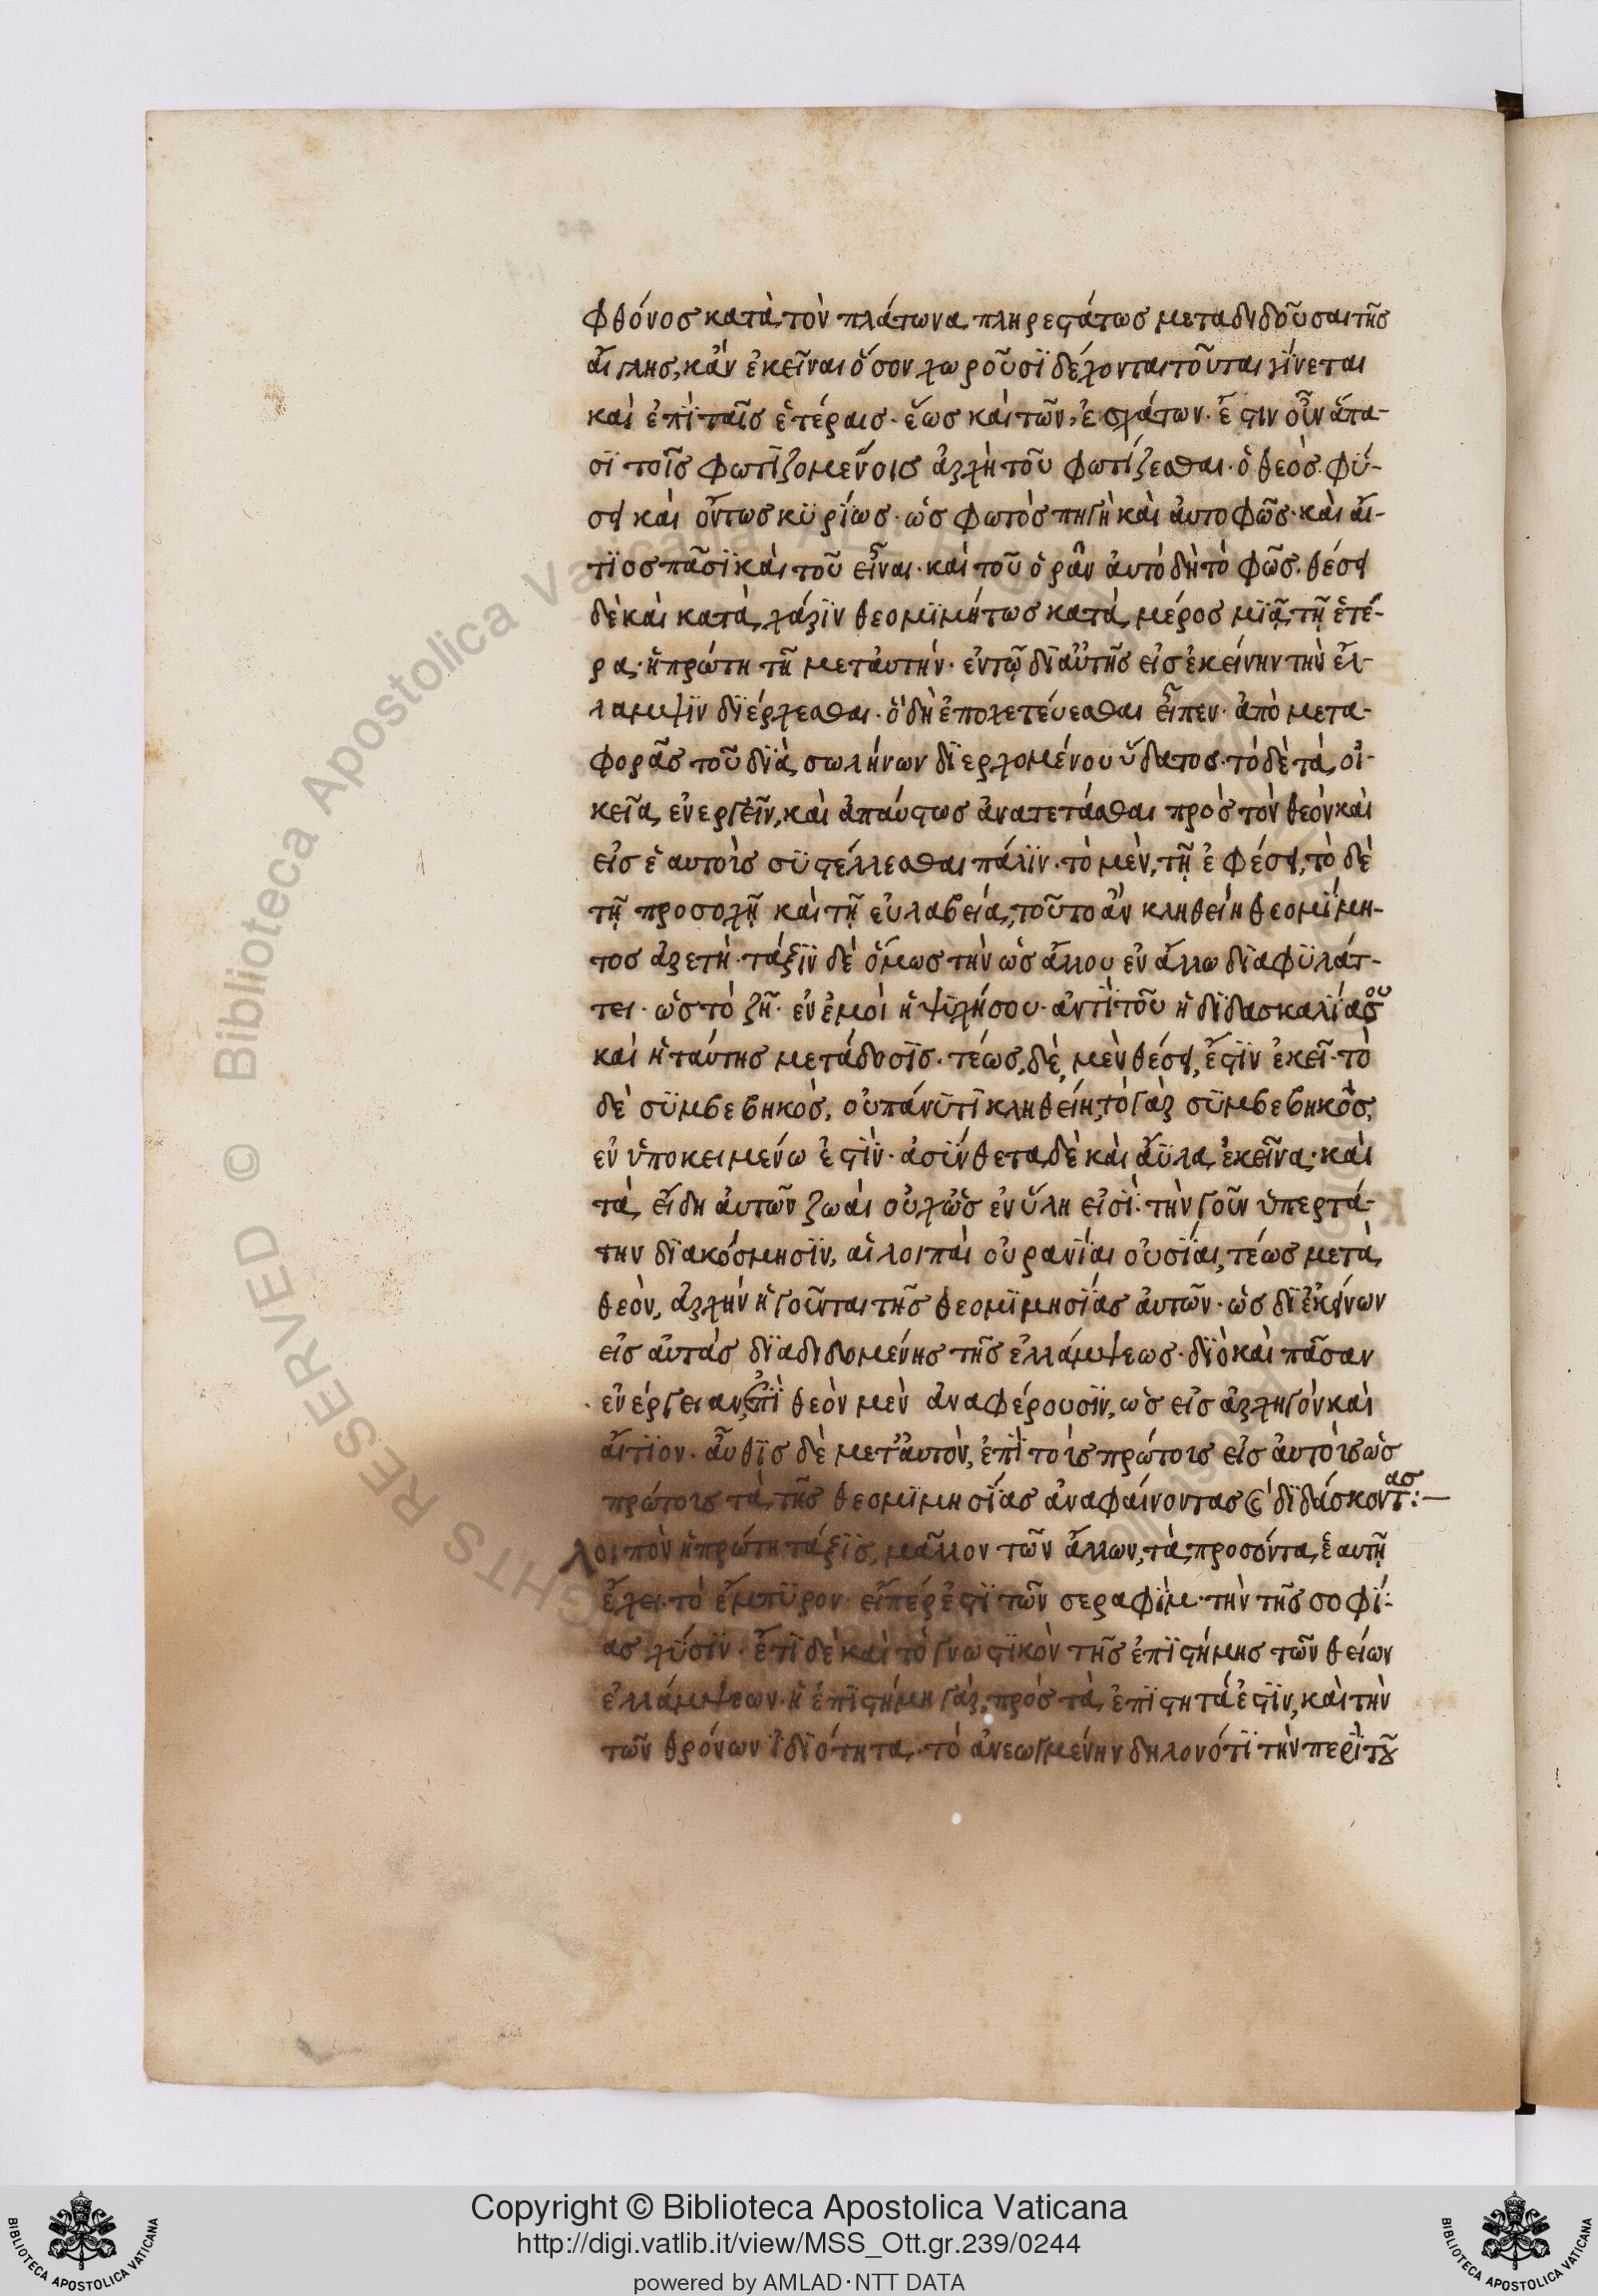 φθόνοσ κατὰ τὸν πλάτωνα πληρεστάτωσ μεταδιδοῦσαι τῆσ
αἴγλησ, κἂν ἐκεῖναι ὅσον χωροῦσϊ δέχονται τοῦται γίνεται
καὶ ἐπῒ ταῖσ ἑτέραισ· ἕωσ καὶ τῶν ἐσχάτων· ἔστιν οὖν ἅπα-
σϊ τοῖσ φωτϊζομένοισ ἀρχὴ τοῦ φωτίζεσθαι· ὁ θεὸσ φύ-
σει καὶ ὄντωσ κϋρίωσ· ὡσ φωτὸσ πηγὴ καὶ ἀυτοφῶσ· καὶ ἄι-
τϊοσ πᾶσϊ καὶ τοῦ εἶναι· καὶ τοῦ ὁρᾶν ἀυτὸ δὴ τὸ φῶσ· θέσει
δὲ καὶ κατὰ χάριν θεομϊμήτωσ κατὰ μέροσ μϊᾷ τῇ ἑτέ-
ρα· ἡ πρώτη τῆ μετ ἀυτὴν· ἐν τῷ δϊ αὐτῆσ εἰσ ἐκείνην τὴν ἔλ-
λαμψϊν δϊέρχεσθαι· ὃ δὴ ἐποχετέυεσθαι εἶπεν· ἀπὸ μετα-
φορᾶσ τοῦ δϊὰ σωλήνων δϊερχομένου ὕδατοσ· τὸ δὲ τὰ οἰ-
κεῖα ἐνεργεῖν, καὶ ἀπαύστωσ ἀνατετάσθαι πρὸσ τὸν θεὸν καὶ
εἰσ ἑαυτοὶσ σϋστέλλεσθαι πάλϊν· τὸ μὲν, τῇ ἐφέσει, τὸ δὲ
τῇ προσοχῇ καὶ τῇ εὐλαβεία, τοῦτο ἂν κληθείη θεομΐμη-
τοσ ἀρετὴ· τάξϊν δὲ ὅμωσ τὴν ὡσ ἄλλου ἐν ἄλλω δϊαφϋλάτ-
τει· ὡσ τὸ ζῆ· ἐν ἐμοὶ ἡ ψϋχή σου· ἀντῒ τοῦ ἡ δϊδασκαλΐα σου
καὶ ἡ ταύτησ μετάδοσϊσ· τέωσ, δὲ, μὲν θέσει, ἔστϊν ἐκεῖ· τὸ
δὲ σϋμβεβηκὸσ, οὐ πάνϋ τϊ κληθείη, τὸ γὰρ σϋμβεβηκὸσ,
ἐν ὑποκειμένω ἐστῒν· ἀσΰνθετα δὲ καὶ ἄϋλα ἐκεῖνα· καὶ
τὰ εἴδη ἀυτῶν ζωαὶ οὐχ ὡσ ἐν ὕλη εἰσῒ· τὴν γοῦν ὑπερτά-
την δϊακόσμησϊν, αἱ λοιπαὶ οὐρανΐαι οὐσΐαι, τέωσ μετὰ
θεὸν, ἀρχὴν ἡγοῦνται τῆσ θεομϊμησΐασ ἀυτῶν· ὡσ δϊ ἐκείνων
εἰσ αὐτὰσ δϊαδϊδομένησ τῆσ ἐλλάμψεωσ· δϊὸ καὶ πᾶσαν
ἐνέργειαν, ἐπὶ θεὸν μὲν ἀναφέρουσϊν, ὡσ εἰσ ἀρχηγὸν καὶ
ἄιτϊον· ἄυθϊσ δὲ μετ᾽ ἀυτὸν, ἐπῒ τοὶσ πρώτοισ εἰσ ἀυτοὶσ ὡσ
πρώτοισ τὰ τῆσ θεομϊμησΐασ ἀναφαίνοντασ καὶ δϊδάσκοντασ:—
λοιπὸν ἡ πρώτη τάξϊσ, μᾶλλον τῶν ἄλλων, τὰ προσόντα ἑαυτῇ
ἔχει· τὸ ἔμπϋρον· εἴπέρ ἐστϊ τῶν σεραφῒμ· τὴν τῆσ σοφΐ-
ασ χΰσϊν· ἔτϊ δὲ καὶ τὸ γνωστϊκὸν τῆσ ἐπϊστήμησ τῶν θείων
ἐλλάμψεων· ἡ ἐπϊστήμη γὰρ, πρὸσ τὰ ἐπϊστητά ἐστϊν, καὶ τὴν
τῶν θρόνων ἰδϊότητα· τὸ ἀνεωγμένην δηλονότϊ τὴν περῒ τοῦ
Copyright © Biblioteca Apostolica Vaticana
http://digi.vatlib.it/view/MSS_Ott.gr.239/0244
powered by AMLAD·NTT DATA